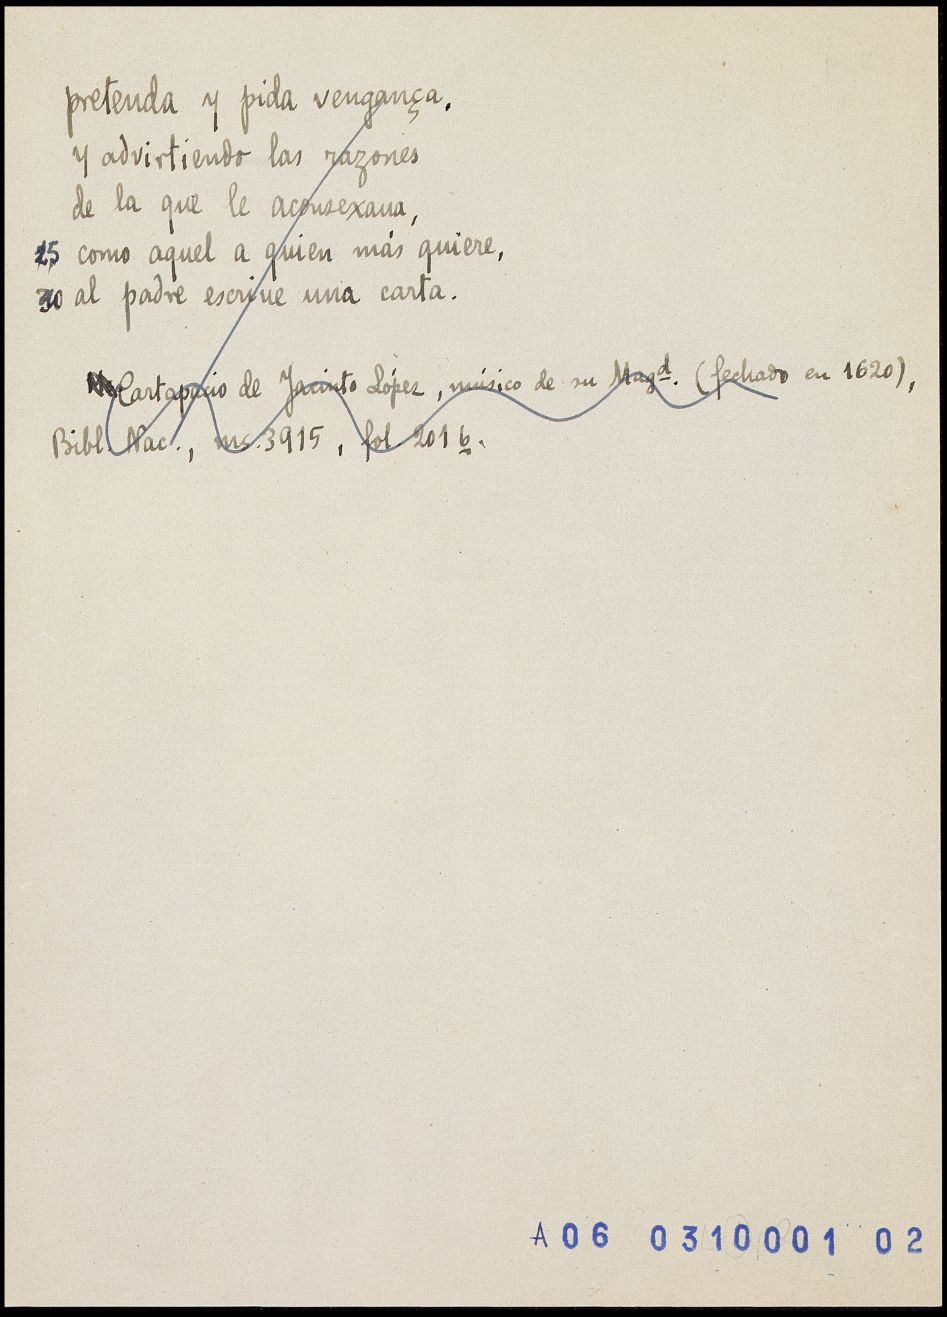 pretenda y pida vengança.
y advirtiendo las razones
de la que le aconsexaua,
25 como aquel a quien más quiere,
30 al padre escriue una carta.
Cartapacio de Jacinto López, músico de su Magd. (fechado en 1620),
Bibl. Nac., ms. 3915, fol. 201 b.
A06 0310001 02